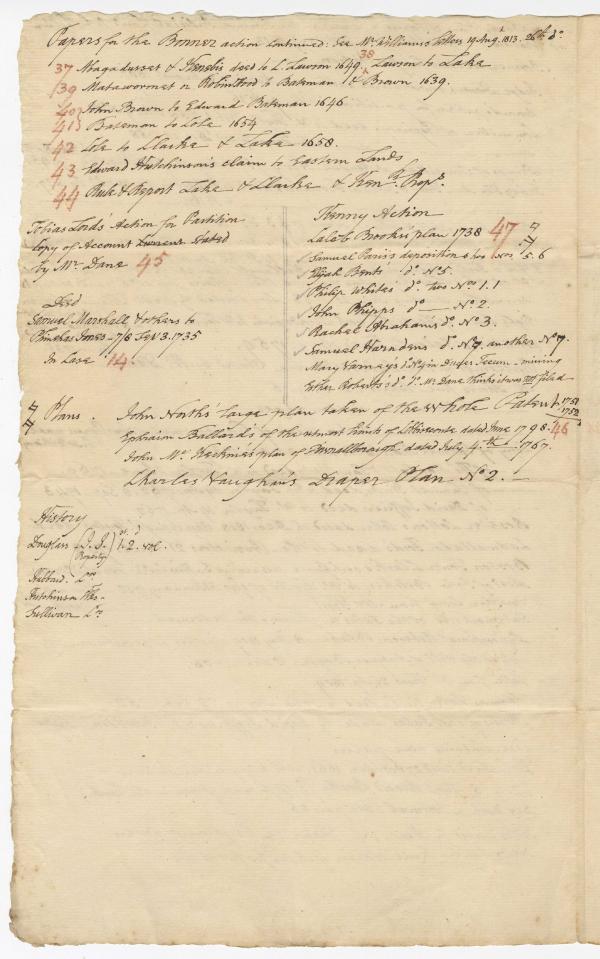 Papers for the Bonner action continued: See Mr. Williams's letters 19 Augt. 1813. 26th. Do.
37 Magadusset & Kenebis deed to L. Lawson 1649. 38 Lawson to Lake
39 Mataworomet or Robin Hood to Bateman & Brown 1639.
40 John Brown to Edward Bateman 1646
41 Bateman to Cole 1654
42 Cole to Clarke & Lake 1658.
43 Edward Hutchinson's claim to Eastern Lands
44 Rule & Report Lake & Clarke & Ken. Props.
Tobias Lord's Action for Partition
Copy of Account Current Stated
by Mr. Dane 45
Deed
Samuel Marshall & others to
Phinehas Jones 7/8 1735
In Case 14.
Kenny Action
Caleb Brooks's plan 1738 47
Samuel Paris's deposition & two Nos. 5.6
Elijah Bents' do. No. 5.
Philip White's do. two Nos. 1.1
John Phipps do. No. 2.
Rachel Abraham's do. No. 3.
Samuel Harnden's do. No. 7. another No. 7.
Mary Varney's do. No. 9 in Duces Tecum - missing
Esther Roberts's do. Do. Mr. Dane thinks it was not filed
Plans. John North's large plan taken of the Whole Patent. 1751 1752
Ephraim Ballard's of the utmost limits of Cobbiseconte dated June 1798. 46
John Mc. Kechnie's plan of Pownallborough dated July 4th 1767.
Charles Vaughan's Draper Plan No. 2.
History
Douglass 1st. 2d. vol.
Hubbard. Do.
Hutchinson
Sullivan Do.